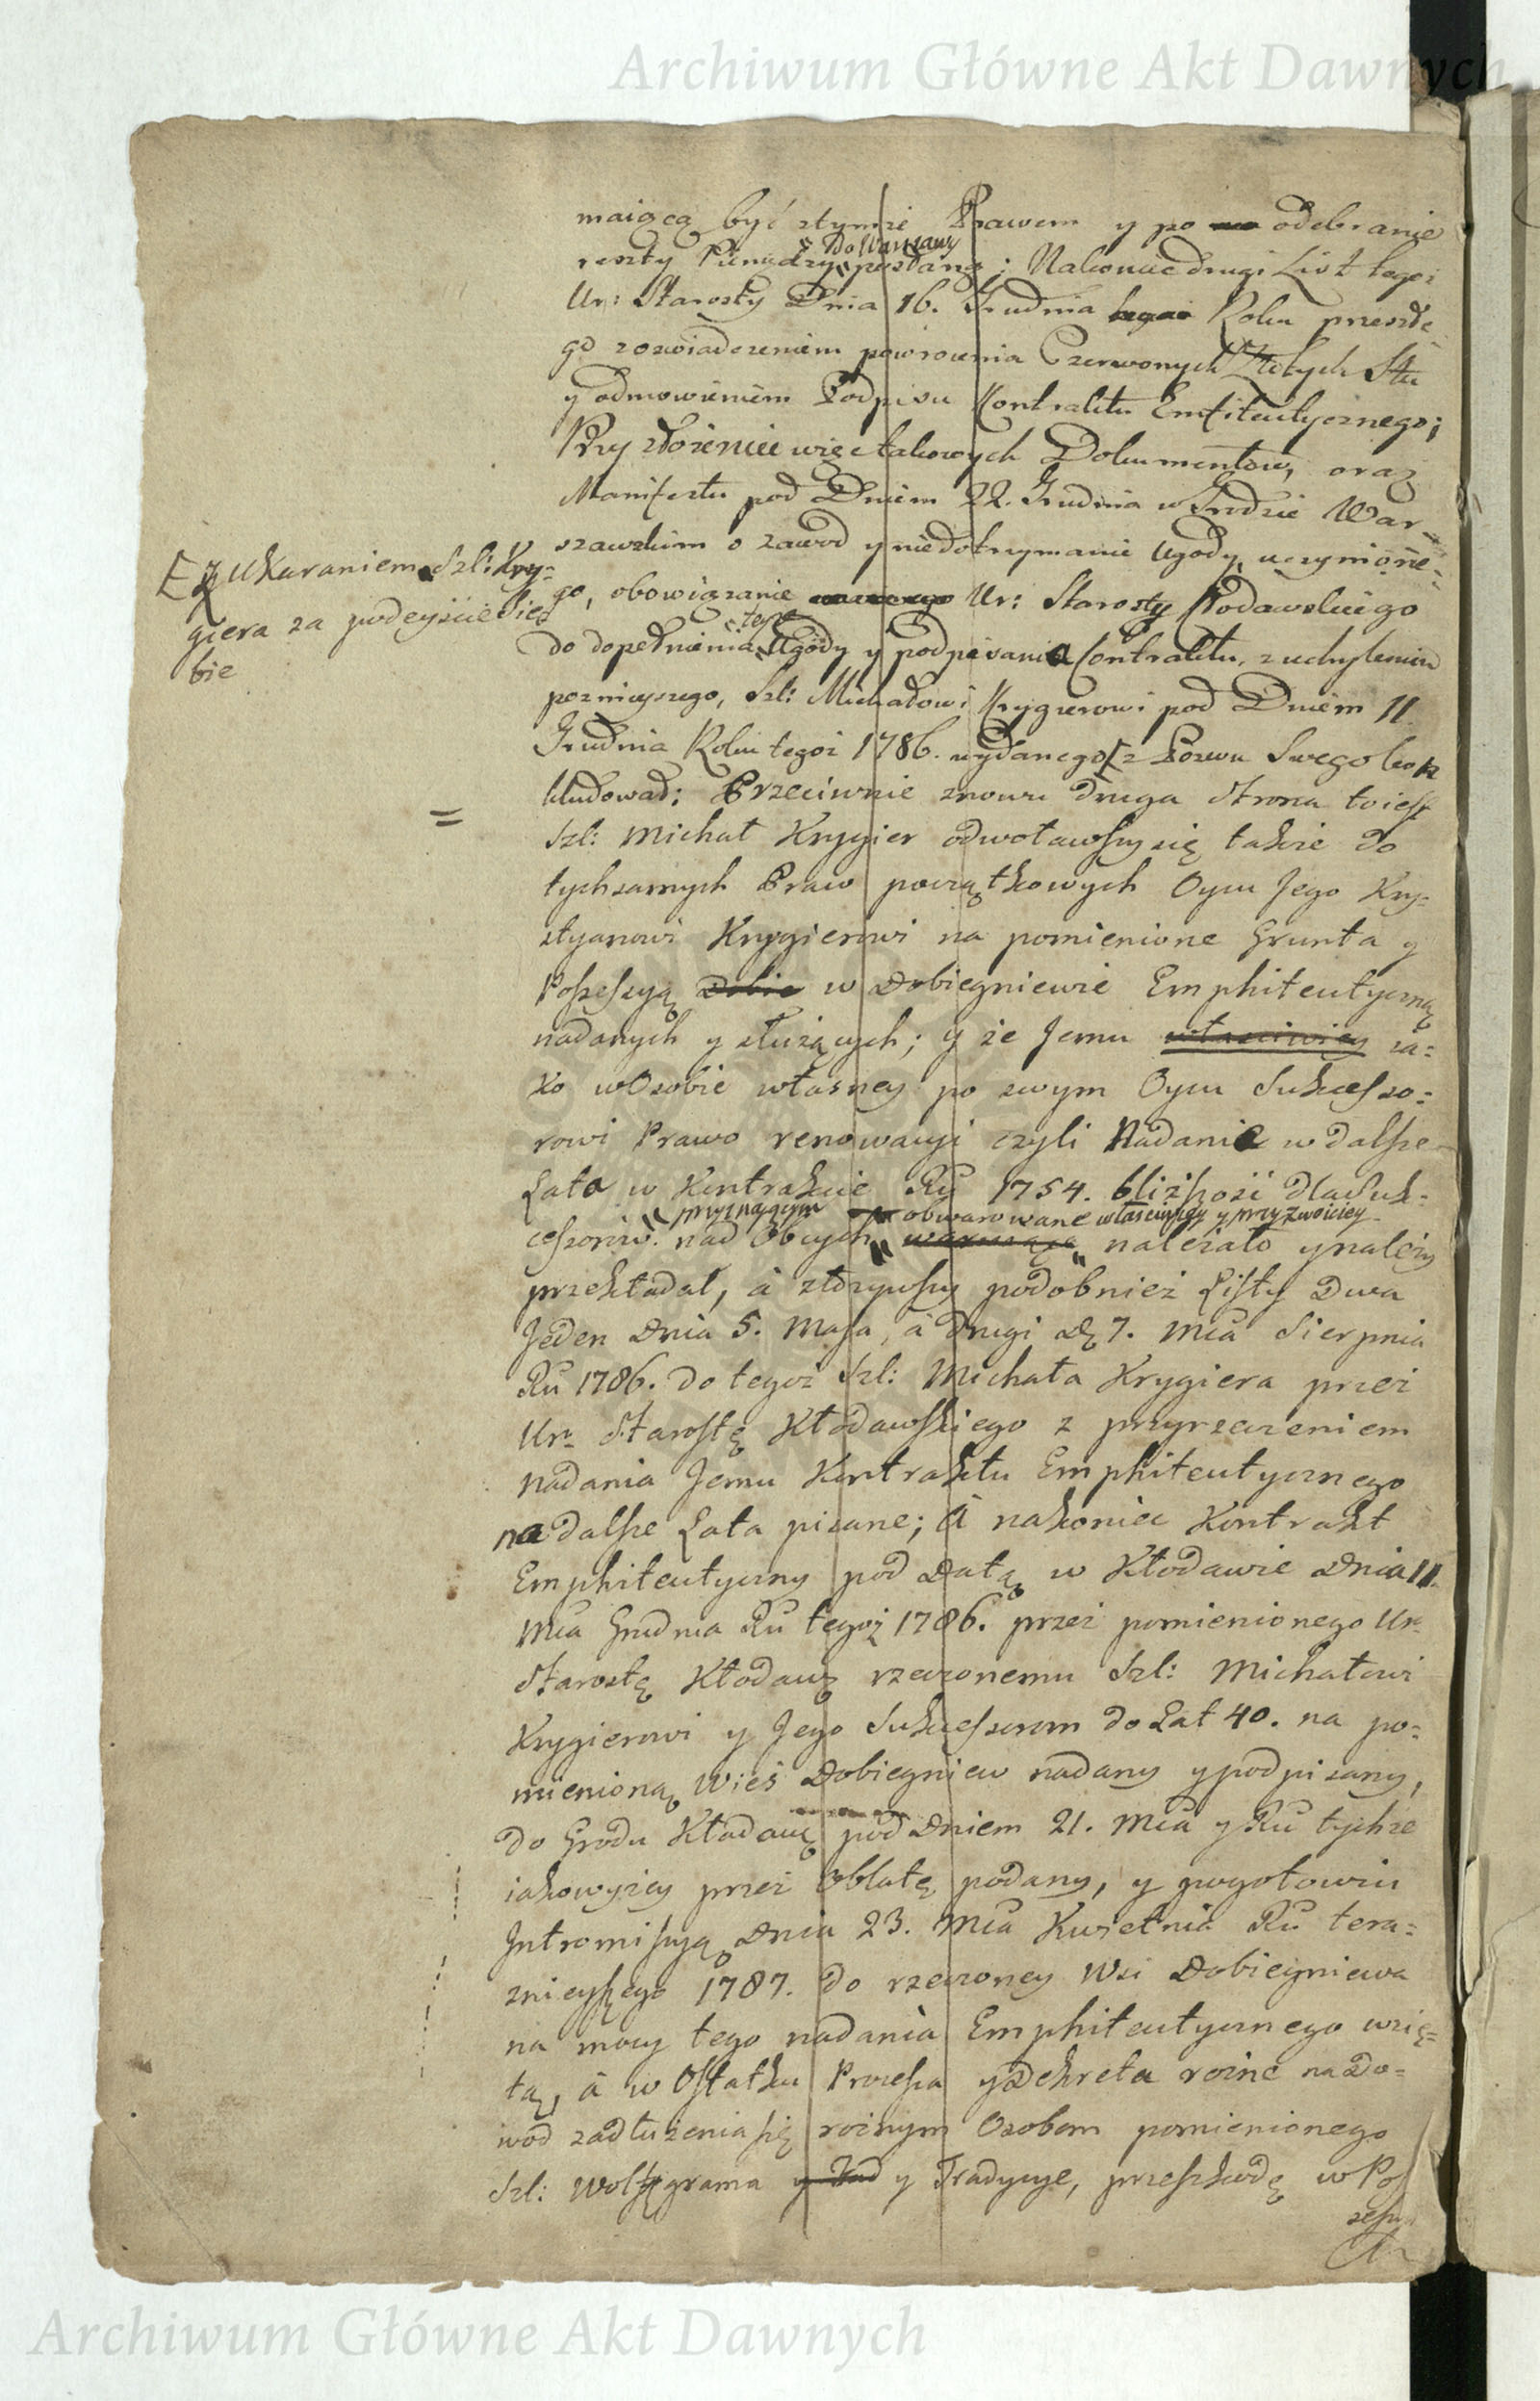 Archiwum Główne Akt Dawnych
maiącą być z tymże Prawem y po odebranie
reszty Pieniędzy Do Warszawy posłaną; Nakoniec drugi List tegoż
Ur: Starosty Dnia 16. Grudnia Roku przeszłe
go z oswiadczeniem powrocenia Czerwonych Złotych Stu
y odmowieniem Podpisu Kontraktu Emfiteutycznego;
Przy złożeniu więc takowych Dokumentow, oraz
Manifestu pod Dniem 22. Grudnia w Grodzie War-
szawskim o zawod y niedotrzymanie Ugody uczynione-
go, obowiązanie Ur: Starosty Kłodawskiego
do dopełnienia teyże Ugody y podpisania Contraktu, z uchyleniem
poznieyszego, Szl: Michałowi Krygierowi pod Dniem 11.
Grudnia Roku tegoż 1786. wydanego [z Pozwu Swego kon
kludował; Przeciwnie znowu druga Strona toiest
[z Ukaraniem Szl: Kry-
giera za podeyscie Sie
bie
=
Szl: Michał Krygier odwoławszy się także do
tychsamych Praw początkowych Oycu Jego Kry-
styanowi Krygierowi na pomienione Grunta y
Possessyą Dobie w Dobiegniewie Emphiteutyczną
nadanych y służących; y że Jemu własciwiey ia-
ko w Osobie własney po swym Oycu Sukcesso-
rowi Prawo renowacyi czyli Nadanie w dalsze
Lata w Kontrakcie Ru 1754. bliższość dla Suk-
cessorów nad Obcych przyznaiącym obwarowane własciwiey y przyzwoiciey należało y należy
przekładał, à złożywszy podobnież Listy Dwa
Jeden Dnia 5. Maja, à drugi D. 7. Mca Sierpnia
Ru 1786. do tegoż Szl: Michała Krygiera przez
Ur. Starostę Kłodawskiego z przyrzeczeniem
nadania Jemu Kontraktu Emphiteutycznego
na dalsze Lata pisane; à nakoniec Kontrakt
Emphiteutyczny pod Datą w Kłodawie Dnia 11.
Mca Grudnia Ru tegoż 1786. przez pomienionego Ur.
Starostę Kłodawę rzeczonemu Szl: Michałowi
Krygierowi y Jego Sukcessorom do Lat 40. na po-
mienioną Wieś Dobiegniew nadany y podpisany,
do Grodu Kłodawę pod Dniem 21. Mca y Ru tychże
iakowyżey przez Oblatę podany, y pogotowiu
Intromissyą Dnia 23. Mca Kwietnia Ru tera-
znieyszego 1787. do rzeczoney Wsi Dobiegniewa
na mocy tego nadania Emphiteutycznego wzię-
tą, à w Ostatku Processa y Dekreta rożne na Do-
wod zadłużenia się rożnym Osobom pomienionego
Szl: Wolfgrama y Trad y Tradycye, przeszkodę w Pos
sessy
Archiwum Główne Akt Dawnych